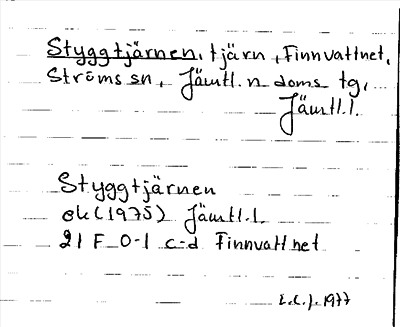 Styggtjärnen, tjärn, Finnvattnet,
Ströms sn, Jämtl. n doms tg,
Jämtl.l.
Styggtjärnen
ek (1975) Jämtl.l.
21 F 0-1 c-d Finnvattnet
1977